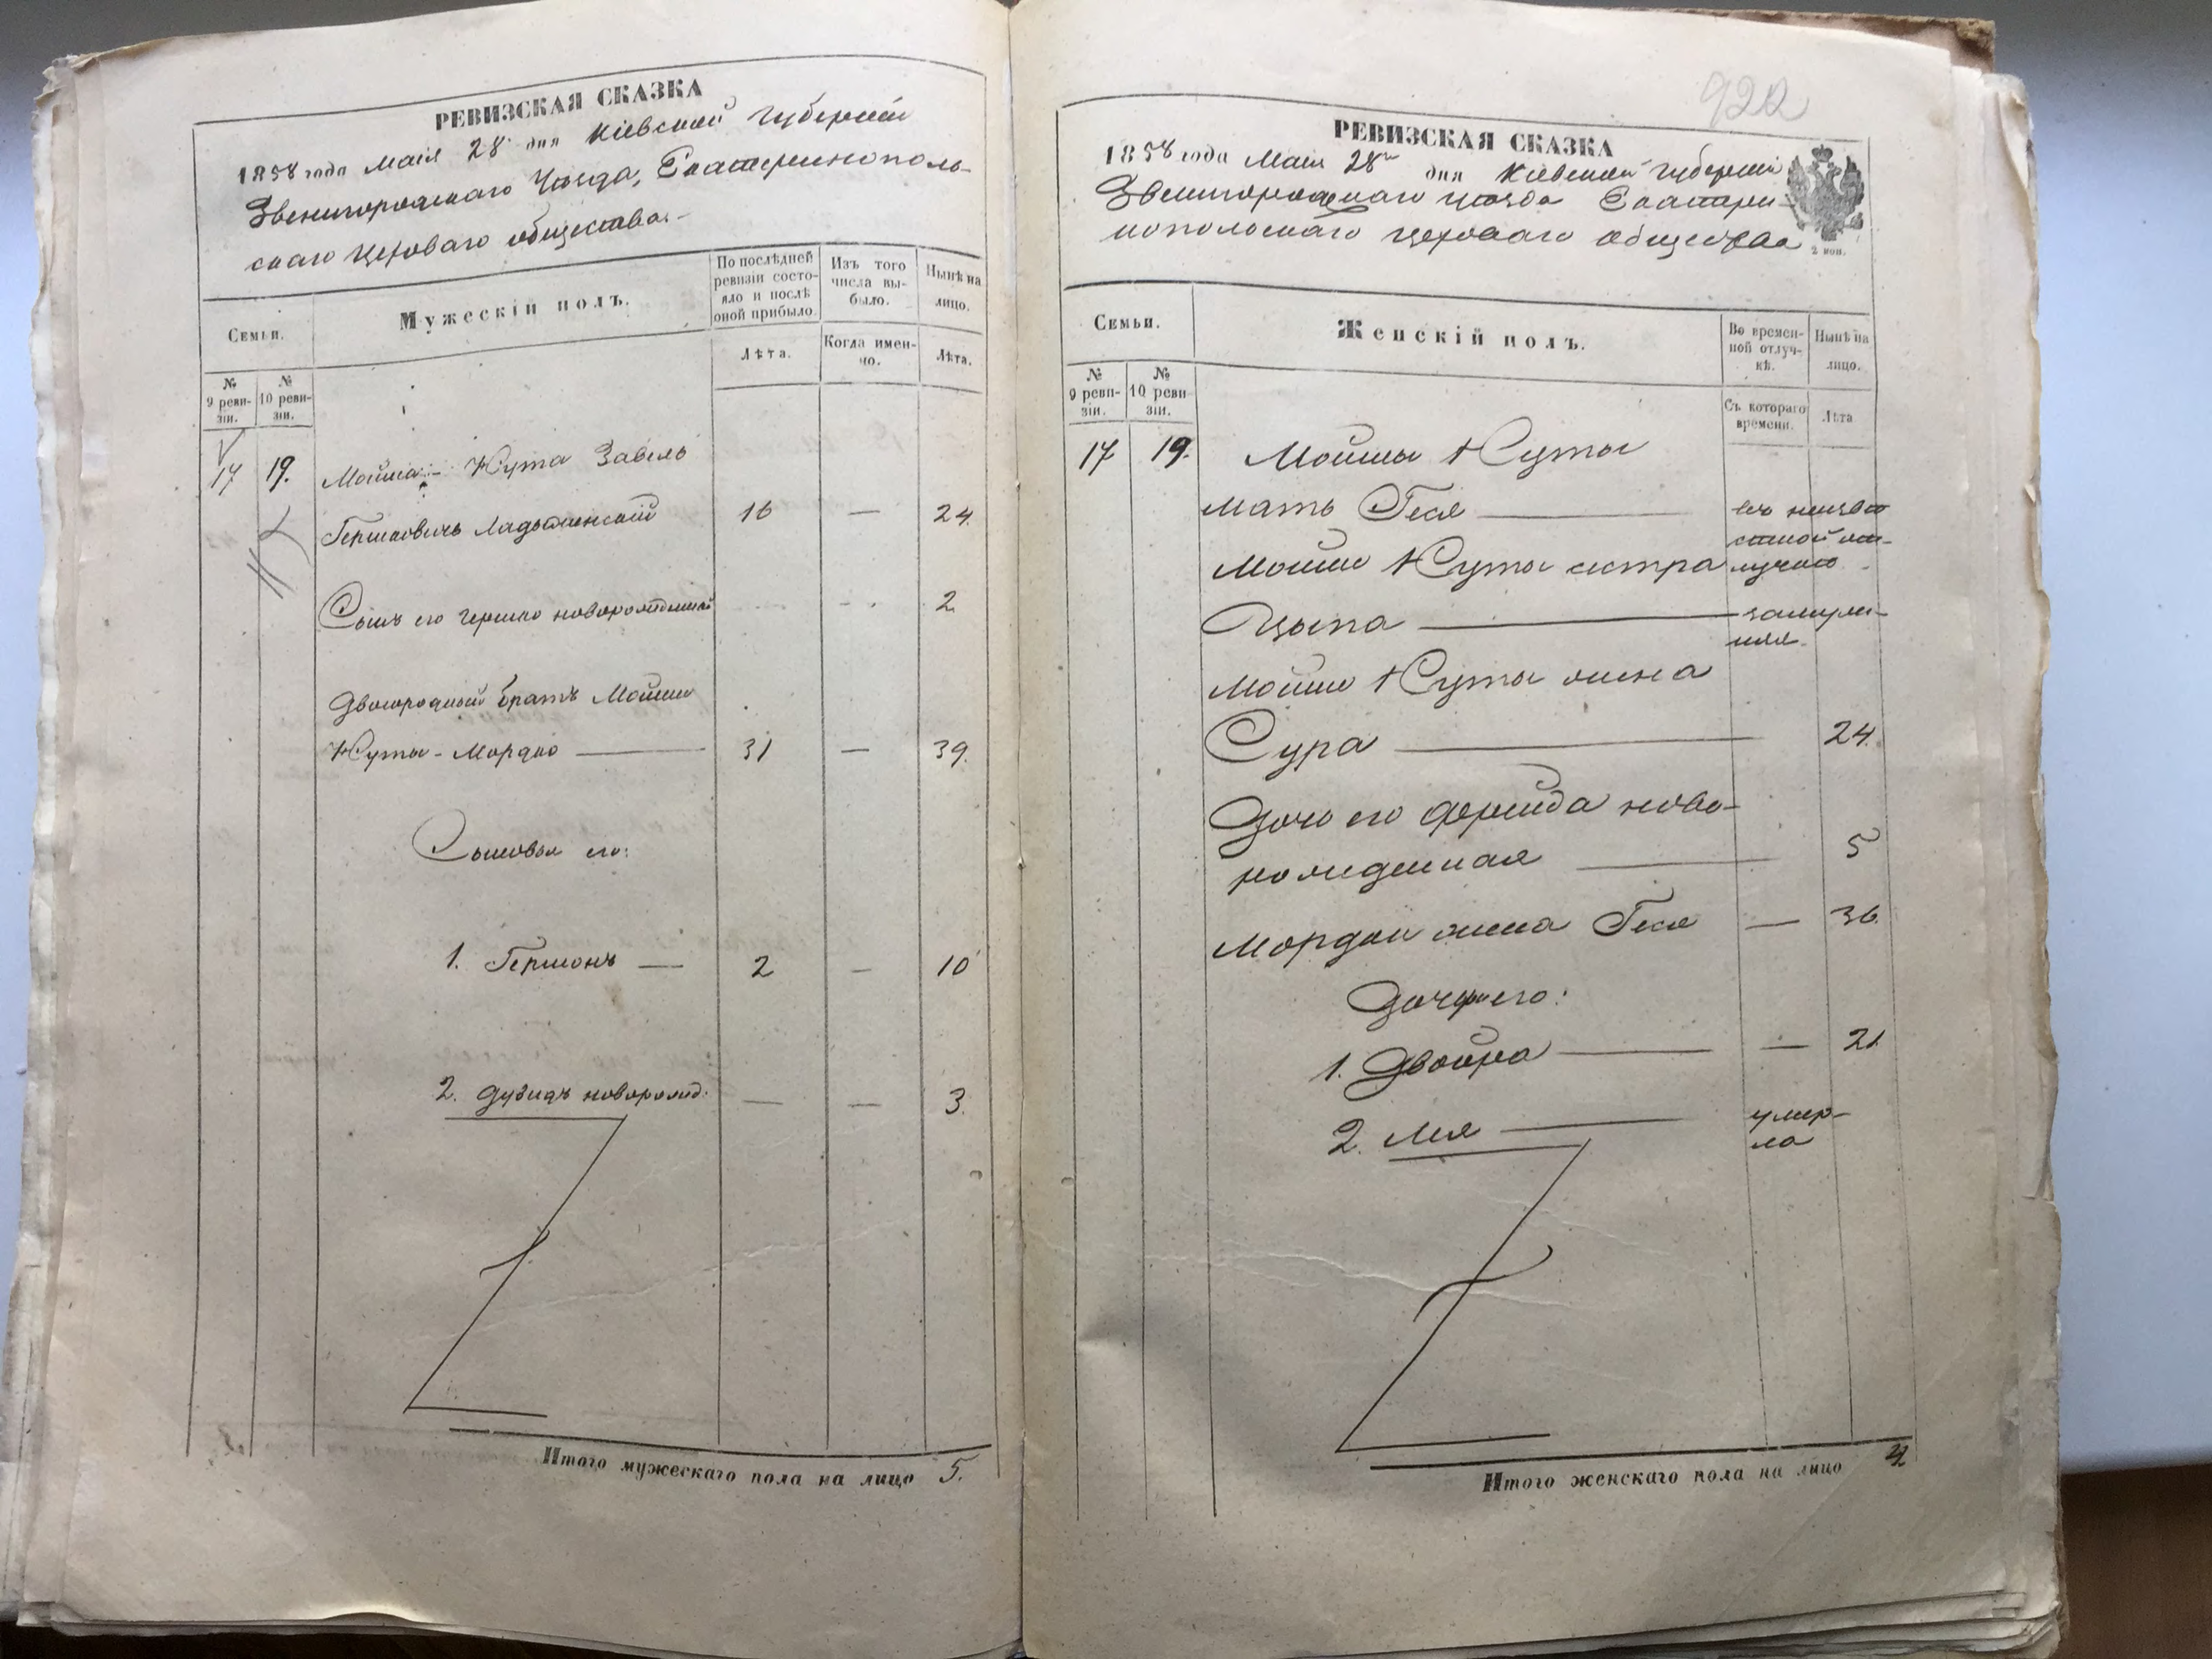 РЕВИЗСКАЯ СКАЗКА
1858 года Маія 28 дня Кіевской губерніи
Звенигородскаго Уѣзда, Екатеринополь-
скаго Цехового общества.
Семьи.
Мужескій полъ.
По послѣдней ревизіи состояло и послѣ оной прибыло.
Изъ того числа выбыло.
Нынѣ на лицо.
№ 9 ревизіи.
№ 10 ревизіи.
Лѣта.
Когда именно.
Лѣта.
17 19. Мойша-Нута Завель
Гершковичъ Ладыжинскій 16 — 24.
Сынъ его Гершко новорожденный - - 2
Двоюродный братъ Мойши
Нуты - Мордко — 31 — 39.
Сыновья его:
1. Гершонъ — 2 — 10
2. Дувидъ новорожд: — — 3.
Итого мужескаго пола на лицо 5.
922
РЕВИЗСКАЯ СКАЗКА
1858 года Маія 28 дня Кіевской губерніи
Звенигородскаго уѣзда Екатери-
нопольскаго цехового общества
2 коп.
Семьи.
Женскій полъ.
Во временной отлучкѣ.
Нынѣ на лицо.
№ 9 ревизіи.
№ 10 ревизіи.
Съ котораго времени.
Лѣта
17 19. Мойши Нуты
мать Геся — въ неизвѣ
стной от-
Мойши Нуты сестра лучкѣ
Цыпа — замуж-
няя.
Мойши Нуты жена
Сура — 24.
Дочь его Фрейда ново-
рожденная — 5
Мордки жена Геся — 36.
Дочери его:
1. Двойра — — 21
2. Лея — умер-
ла
Итого женскаго пола на лицо 4